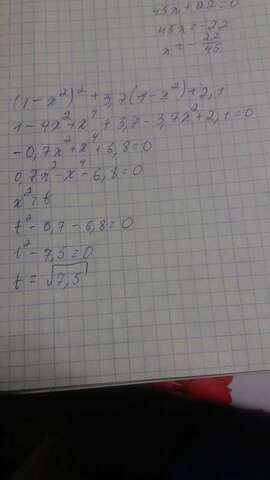 45x+22=0
45x=-22
x=-22/45
(1-x²)²+3,7(1-x²)+2,1
1-4x²+x⁴+3,7-3,7x²+2,1=0
-0,7x²+x⁴+6,8=0
0,7x²-x⁴-6,8=0
x²=t
t²-0,7-6,8=0
t²-7,5=0
t=√7,5